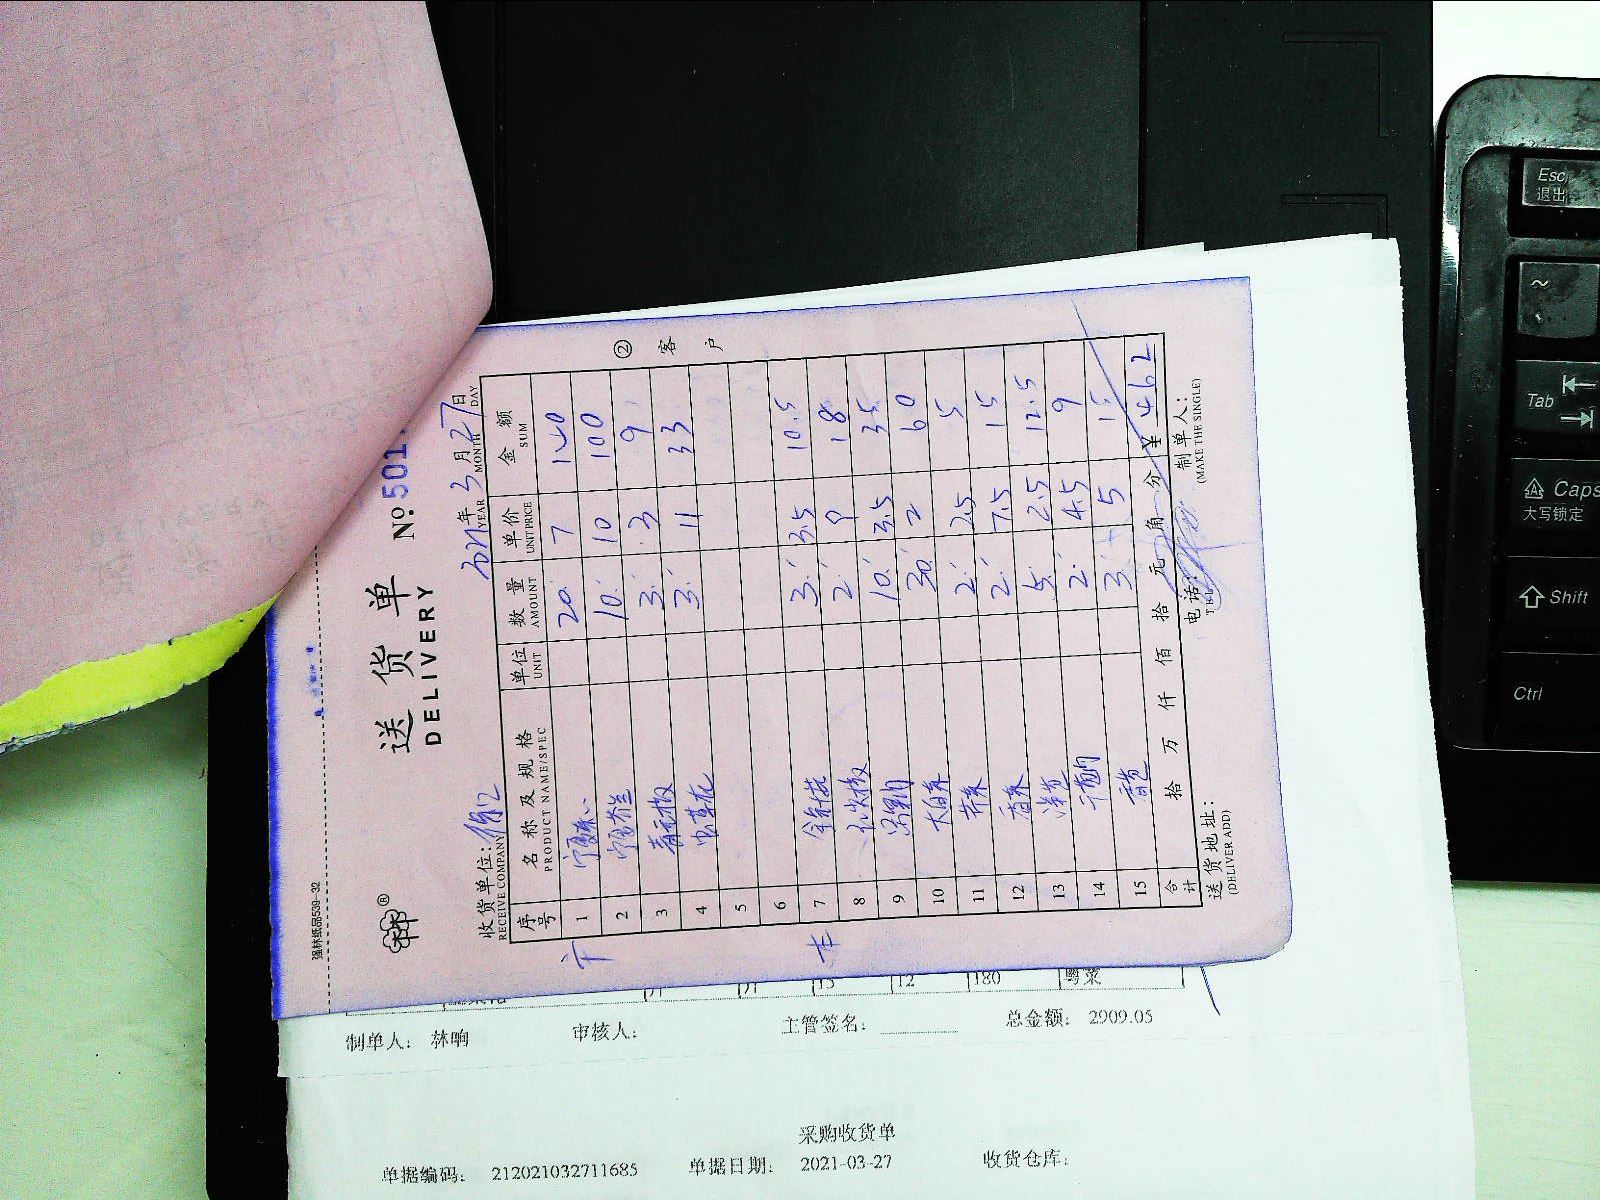 强林纸品539-32
送货单 No. 501
DELIVERY
收货单位: 2021年3月27日
RECEIVE COMPANY YEAR MONTH DAY
序号 名称及规格 单位 数量 单价 金额
PRODUCT NAME/SPEC UNIT AMOUNT UNIT PRICE SUM
1 宁夏菜心 20 7 140
2 宁夏芥兰 10 10 100
3 青元椒 3 3 9
4 虫草花 3 11 33
5
6
7 金针菇 3 3.5 10.5
8 红尖椒 2 9 18
9 10 3.5 35
10 大白菜 30 2 60
11 芹菜 2 2.5 5
12 香菜 2 7.5 15
13 洋葱 5 2.5 12.5
14 2 4.5 9
15 3 5 15
合计 拾 万 仟 佰 拾 元 角 分 ¥ 462
送货地址: 电话: 制单人:
(DELIVER ADD) TEL (MAKE THE SINGLE)
② 客户
15 12 180 粤菜
制单人: 林响 审核人: 主管签名: 总金额: 2909.05
采购收货单
单据编码: 212021032711685 单据日期: 2021-03-27 收货仓库:
Esc
退出
~
Tab
Caps
大写锁定
Shift
Ctrl